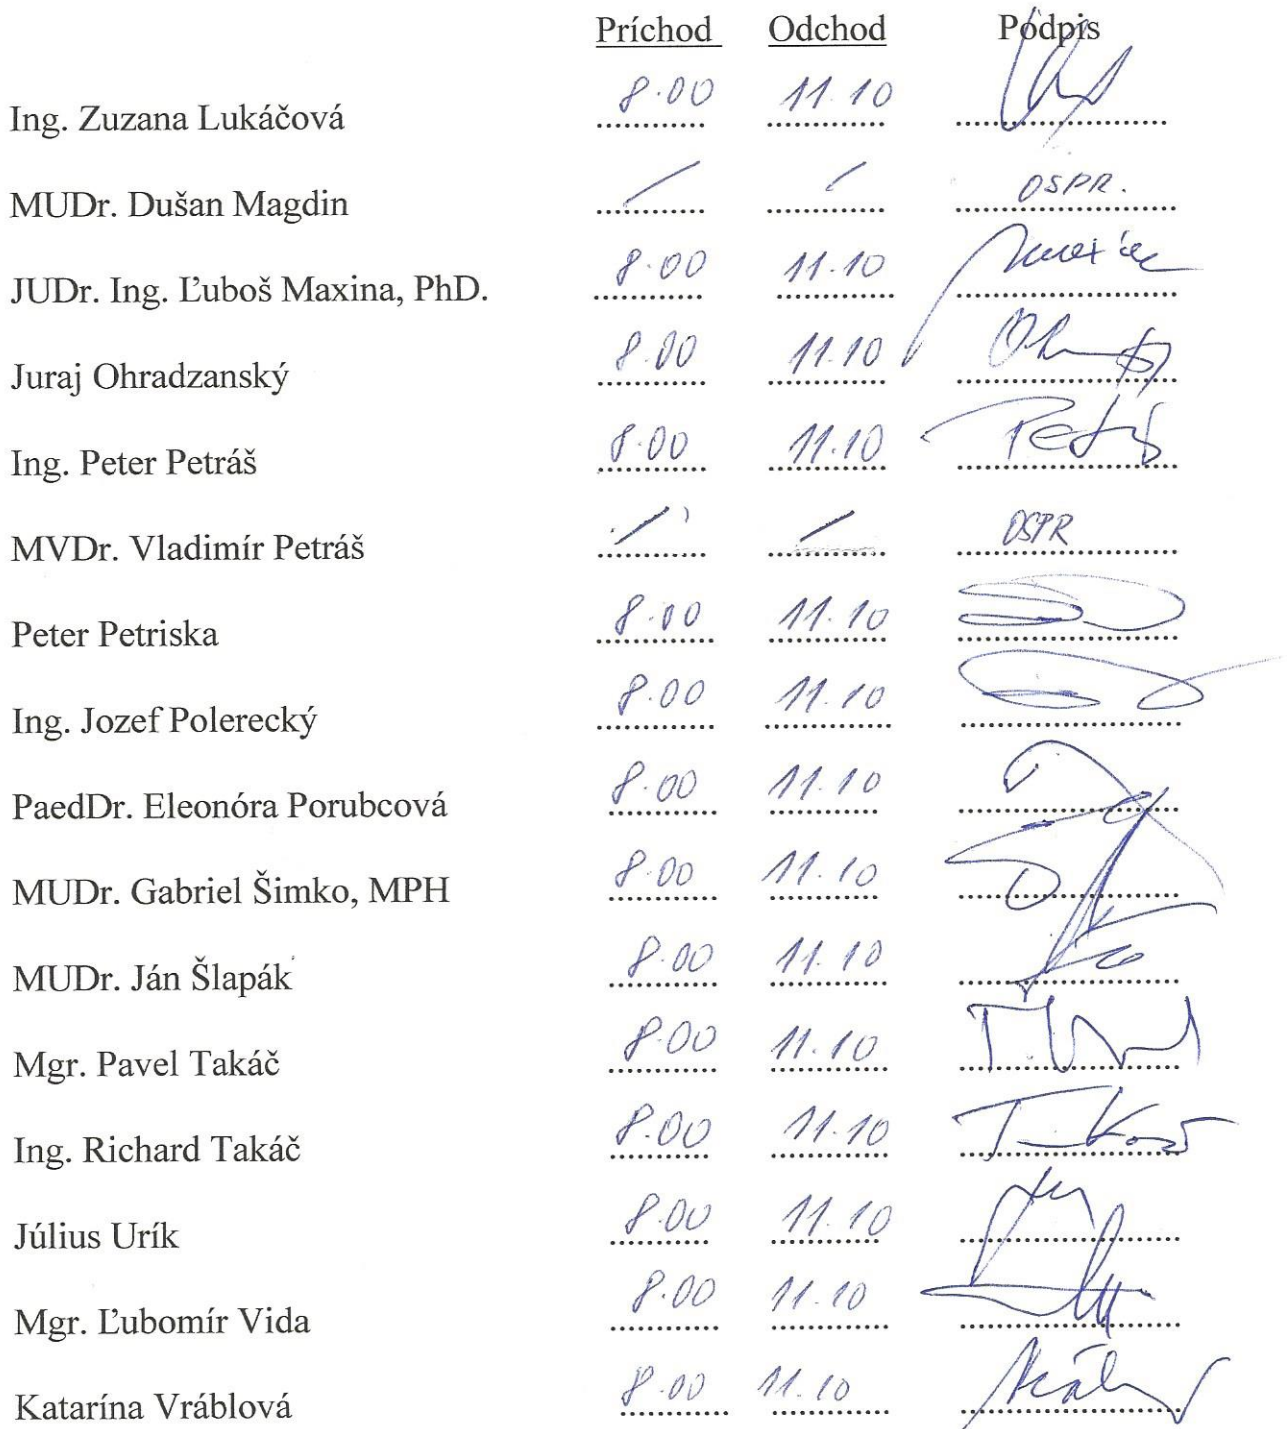 Príchod Odchod Podpis
Ing. Zuzana Lukáčová 8.00 11.10
MUDr. Dušan Magdin / / OSPR.
JUDr. Ing. Ľuboš Maxina, PhD. 8.00 11.10
Juraj Ohradzanský 8.00 11.10
Ing. Peter Petráš 8.00 11.10
MVDr. Vladimír Petráš / / OSPR
Peter Petriska 8.00 11.10
Ing. Jozef Polerecký 8.00 11.10
PaedDr. Eleonóra Porubcová 8.00 11.10
MUDr. Gabriel Šimko, MPH 8.00 11.10
MUDr. Ján Šlapák 8.00 11.10
Mgr. Pavel Takáč 8.00 11.10
Ing. Richard Takáč 8.00 11.10
Július Urík 8.00 11.10
Mgr. Ľubomír Vida 8.00 11.10
Katarína Vráblová 8.00 11.10